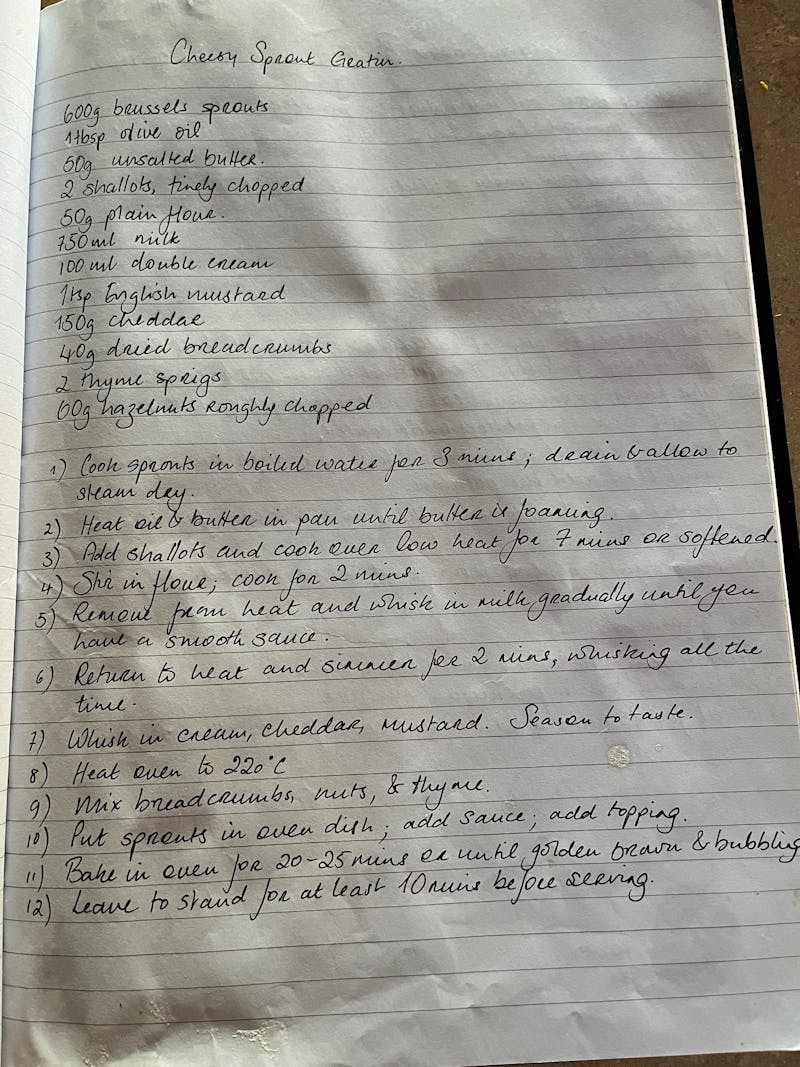 Cheesy Sprout Gratin.
600g brussels sprouts
1tbsp olive oil
50g unsalted butter.
2 shallots, finely chopped
50g plain flour.
750ml milk
100ml double cream
1tsp English mustard
150g cheddar
40g dried breadcrumbs
2 thyme sprigs
60g hazelnuts roughly chopped
1) Cook sprouts in boiled water for 3 mins; drain & allow to
steam dry.
2) Heat oil & butter in pan until butter is foaming.
3) Add shallots and cook over low heat for 7 mins or softened.
4) Stir in flour; cook for 2 mins.
5) Remove from heat and whisk in milk gradually until you
have a smooth sauce.
6) Return to heat and simmer for 2 mins, whisking all the
time.
7) Whisk in cream, cheddar, mustard. Season to taste.
8) Heat oven to 220°C
9) Mix breadcrumbs, nuts, & thyme.
10) Put sprouts in oven dish; add sauce; add topping.
11) Bake in oven for 20-25 mins or until golden brown & bubbling
12) Leave to stand for at least 10 mins before serving.